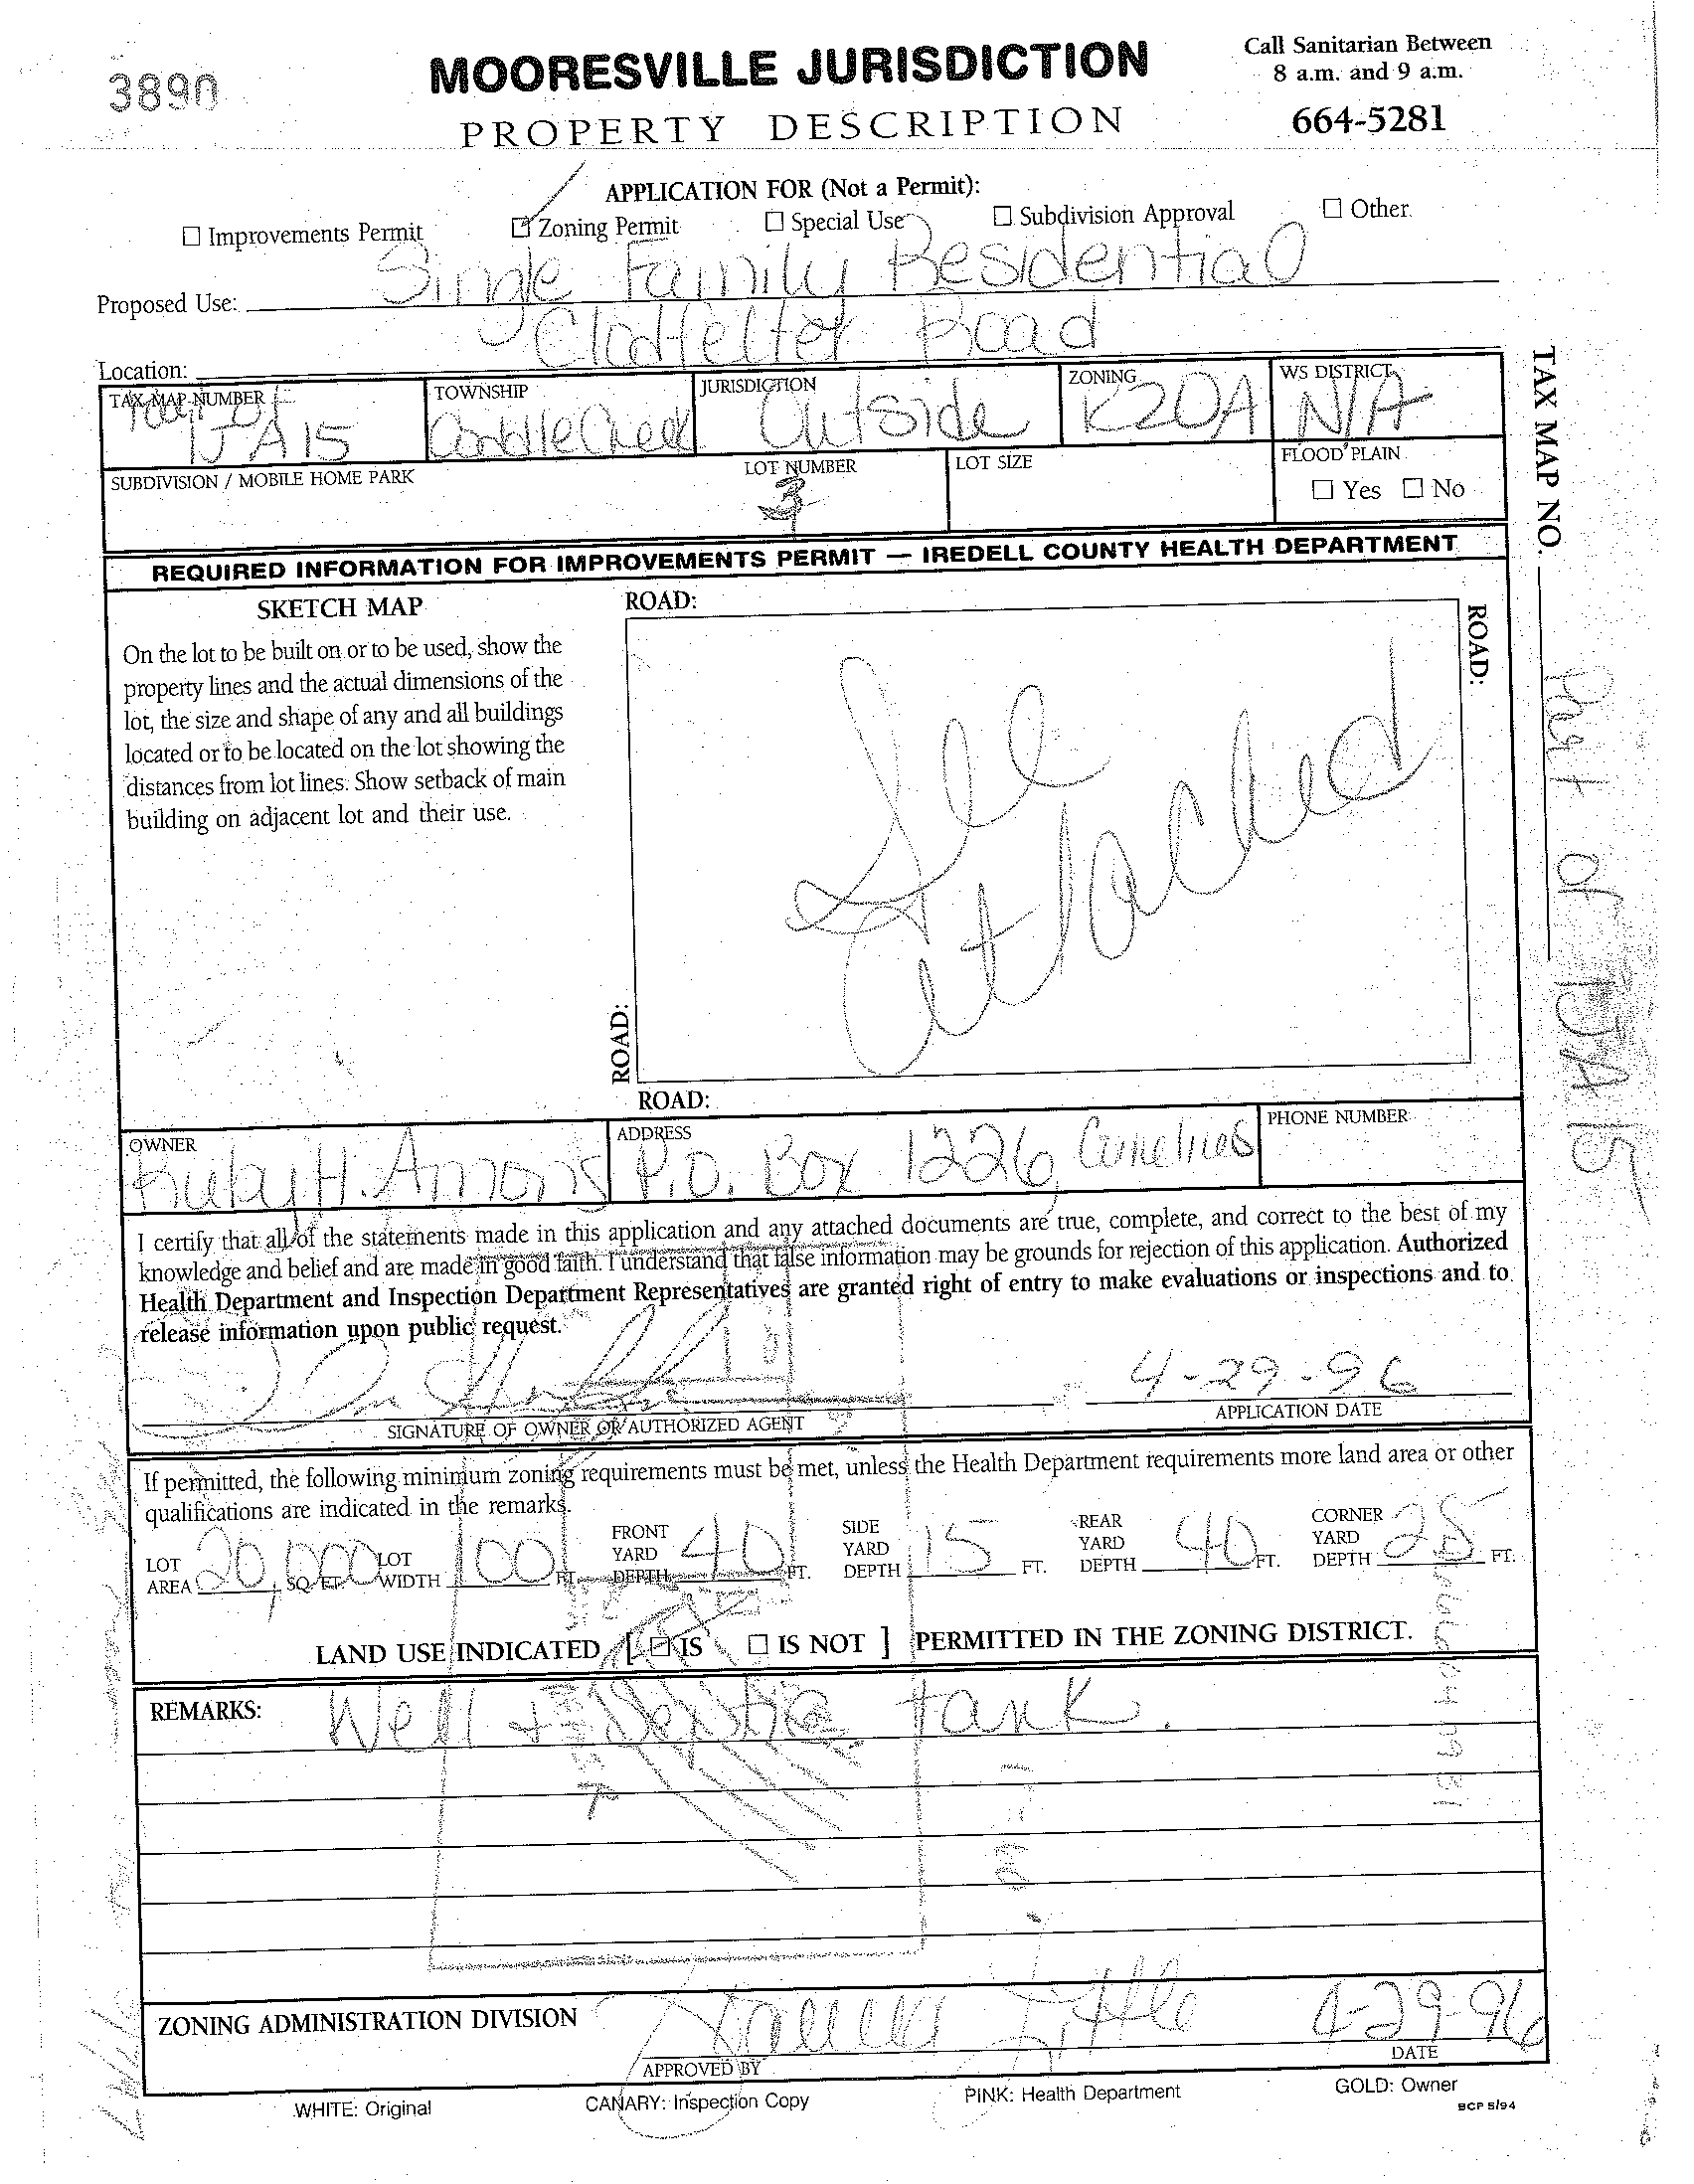 3890
MOORESVILLE JURISDICTION
PROPERTY DESCRIPTION
Call Sanitarian Between
8 a.m. and 9 a.m.
664-5281
APPLICATION FOR (Not a Permit):
☐ Improvements Permit ☑ Zoning Permit ☐ Special Use ☐ Subdivision Approval ☐ Other
Proposed Use: Single Family Residential
Location: Clodfelter Road
TAX MAP NUMBER Part of 15A15
TOWNSHIP Coddle Creek
JURISDICTION Outside
ZONING R20A
WS DISTRICT N/A
SUBDIVISION / MOBILE HOME PARK
LOT NUMBER 3
LOT SIZE
FLOOD PLAIN
☐ Yes ☐ No
TAX MAP NO. part of
REQUIRED INFORMATION FOR IMPROVEMENTS PERMIT — IREDELL COUNTY HEALTH DEPARTMENT
SKETCH MAP
On the lot to be built on or to be used, show the
property lines and the actual dimensions of the
lot, the size and shape of any and all buildings
located or to be located on the lot showing the
distances from lot lines. Show setback of main
building on adjacent lot and their use.
ROAD:
ROAD:
See
attached
ROAD:
ROAD:
OWNER Ruby H.
ADDRESS P.O. Box 1226, Cornelius
PHONE NUMBER
I certify that all of the statements made in this application and any attached documents are true, complete, and correct to the best of my
knowledge and belief and are made in good faith. I understand that false information may be grounds for rejection of this application. Authorized
Health Department and Inspection Department Representatives are granted right of entry to make evaluations or inspections and to
release information upon public request.
4-29-96
SIGNATURE OF OWNER OR AUTHORIZED AGENT
APPLICATION DATE
If permitted, the following minimum zoning requirements must be met, unless the Health Department requirements more land area or other
qualifications are indicated in the remarks.
LOT AREA 20,000 SQ. FT. LOT WIDTH 100 FT. FRONT YARD DEPTH 40 FT. SIDE YARD DEPTH 15 FT. REAR YARD DEPTH 40 FT. CORNER YARD DEPTH 25 FT.
LAND USE INDICATED [ ☑ IS ☐ IS NOT ] PERMITTED IN THE ZONING DISTRICT.
REMARKS: Well + Septic tank.
ZONING ADMINISTRATION DIVISION
Little 4-29-96
APPROVED BY
DATE
WHITE: Original
CANARY: Inspection Copy
PINK: Health Department
GOLD: Owner
BCP 5/94